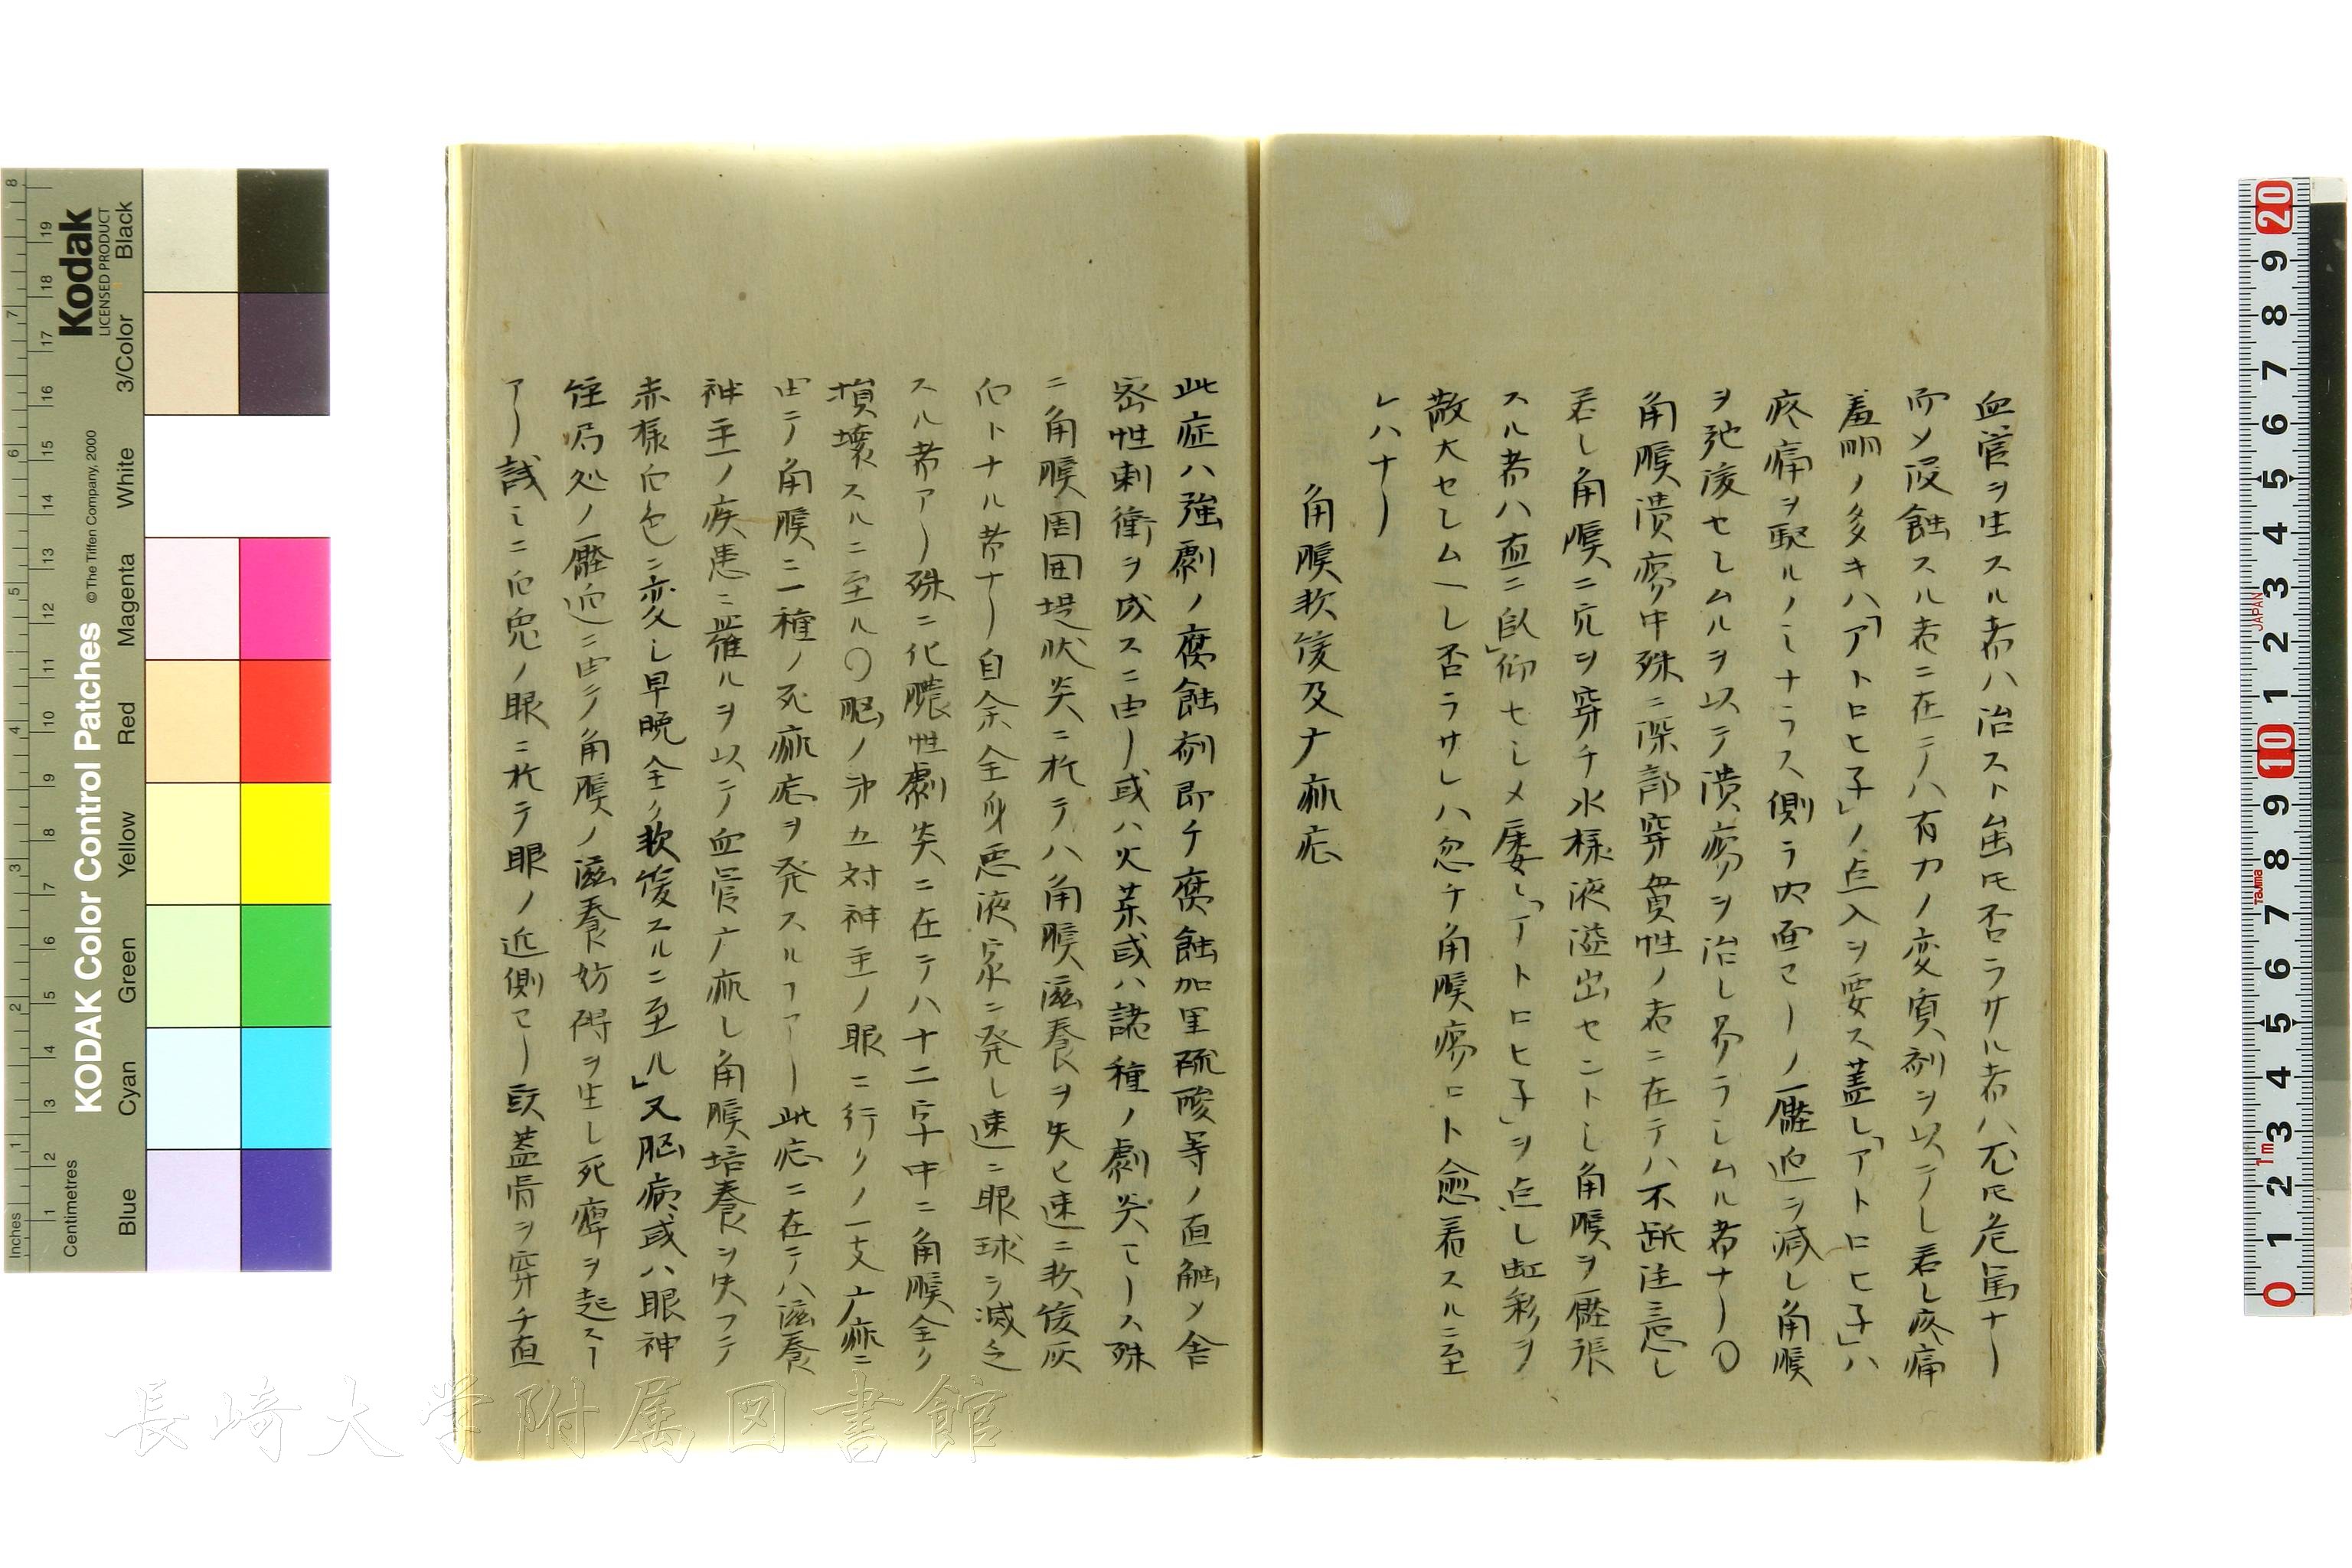 血管ヲ生スル者ハ治スト虽𪜈否ラサル者ハ尤𪜈危篤ナリ
而メ侵蝕スル者ニ在テハ有力ノ変質剤ヲ以テシ若シ疼痛
羞明ノ多キハ「アトロヒ子」ノ点入ヲ要ス蓋し「アトロヒ子」ハ
疼痛ヲ駆ルノミナラス側ラ内面ヨリノ壓迫ヲ減し角膜
ヲ弛浚セしムルヲ以テ潰瘍ヲ治し易ラしムル者ナリ〇
角膜潰瘍中殊ニ深部穿貫性ノ者ニ在テハ不断注意し
若し角膜ニ穴ヲ穿チ水様液溢出セントし角膜ヲ壓張
スル者ハ直ニ臥」仰セしメ屡し「アトロヒ子」ヲ点し虹彩ヲ
散大セしムヘし否ラサレハ忽チ角膜瘍口ト愈着スルニ至
レハナリ
角膜軟浚及ナ痲疕
此症ハ強劇ノ腐蝕剤即チ腐蝕加里硫酸等ノ直觸メ舎
密性刺衝ヲ成スニ由リ或ハ火薬或ハ諸種ノ劇炎ヨリス殊
ニ角膜周囲堤状炎ニ於テハ角膜滋養ヲ失ヒ速ニ軟浚灰
白トナル者ナリ自余全身悪液家ニ発し速ニ眼球ヲ滅乏
スル者アリ殊ニ化膿性劇炎ニ在テハ十二字中ニ角膜全ク
損壊スルニ至ル〇脳ノ第五対神圣ノ眼ニ行クノ一支广痲ニ
由テ角膜ニ一種ノ死痲疕ヲ発スルヿアリ此疕ニ在テハ滋養
神圣ノ疾患ニ罹ルヲ以テ血管广痲し角膜培養ヲ失フテ
赤様白色ニ変し早晩全ク軟浚スルニ至ル」又脳病或ハ眼神
経局処ノ壓迫ニ由テ角膜ノ滋養妨碍ヲ生し死痺ヲ起スー
アリ試ミニ白兎ノ眼ニ於テ眼ノ近側ヨリ頭蓋骨ヲ穿チ直
Kodak
LICENSED PRODUCT
KODAK Color Control Patches
© The Tiffen Company, 2000
Inches
Centimetres
Blue
Cyan
Green
Yellow
Red
Magenta
White
3/Color
Black
JAPAN
Tajima
Tm
長崎大学附属図書館